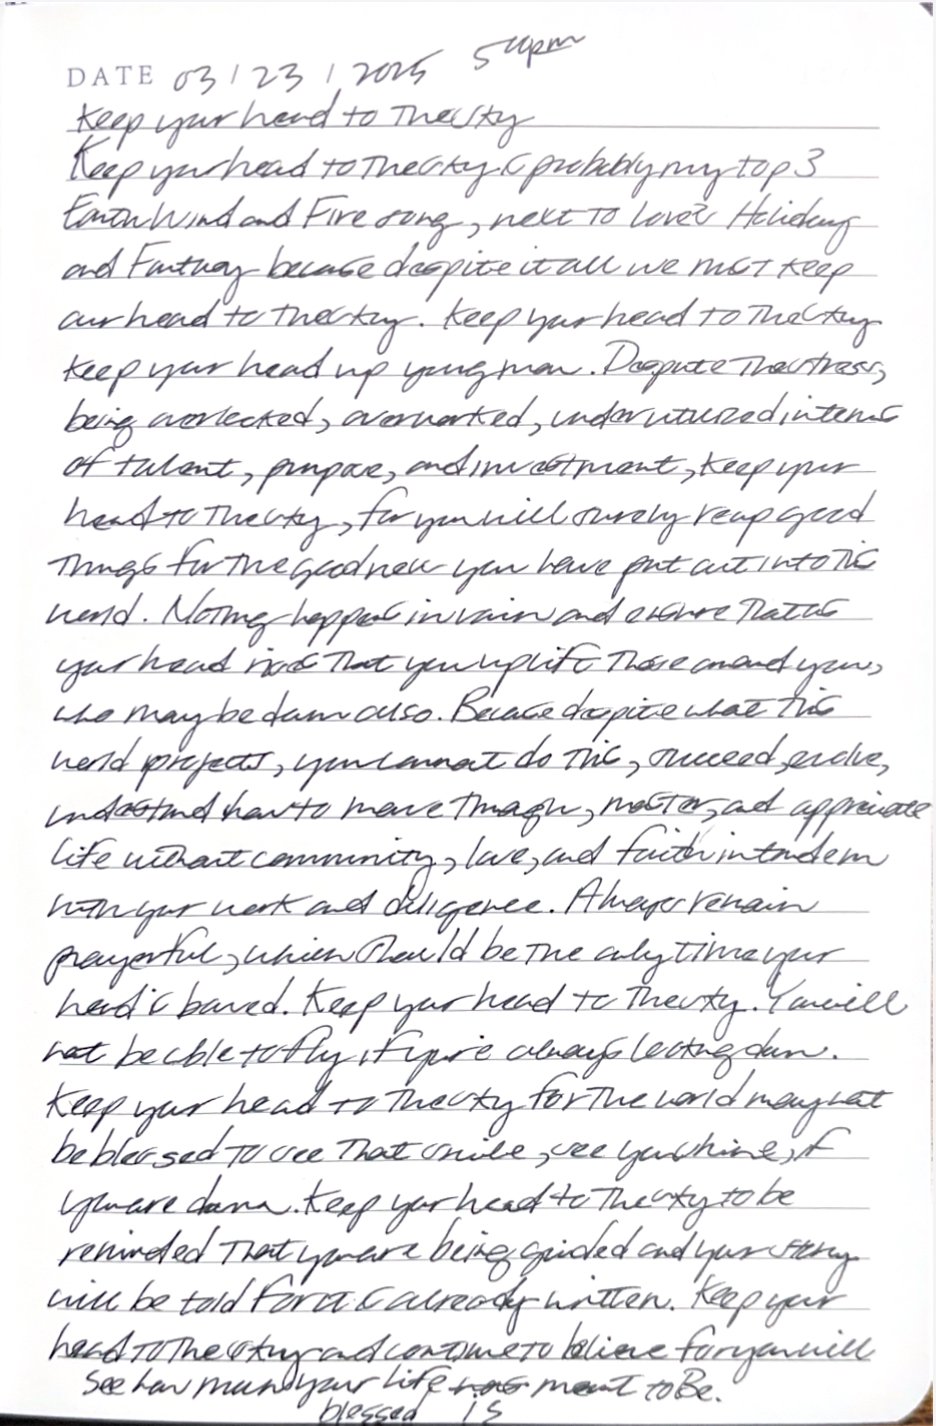 DATE 03 / 23 / 2025 5:41pm
Keep your head to the sky
Keep your head to the sky is probably my top 3
Earth Wind and Fire song, next to Love's Holiday
and Fantasy because despite it all we must keep
our head to the sky. Keep your head to the sky
keep your head up young man. Despite the stress,
being overlooked, overworked, underutilized in terms
of talent, purpose, and investment, keep your
head to the sky, for you will surely reap good
things for the goodness you have put out into this
world. Nothing happens in vain and ensure that as
your head rises that you uplift those around you,
who may be down also. Because despite what this
world projects, you cannot do this, succeed, evolve,
understand how to move through, master, and appreciate
life without community, love, and faith in tandem
with your work and diligence. Always remain
prayerful, which should be the only time your
head is bowed. Keep your head to the sky. You will
not be able to fly if you're always looking down.
Keep your head to the sky for the world may not
be blessed to see that smile, see you shine, if
you are down. Keep your head to the sky to be
reminded that you are being guided and your story
will be told for it is already written. Keep your
head to the sky and continue to believe for you will
see how much your life was meant to Be.
blessed is